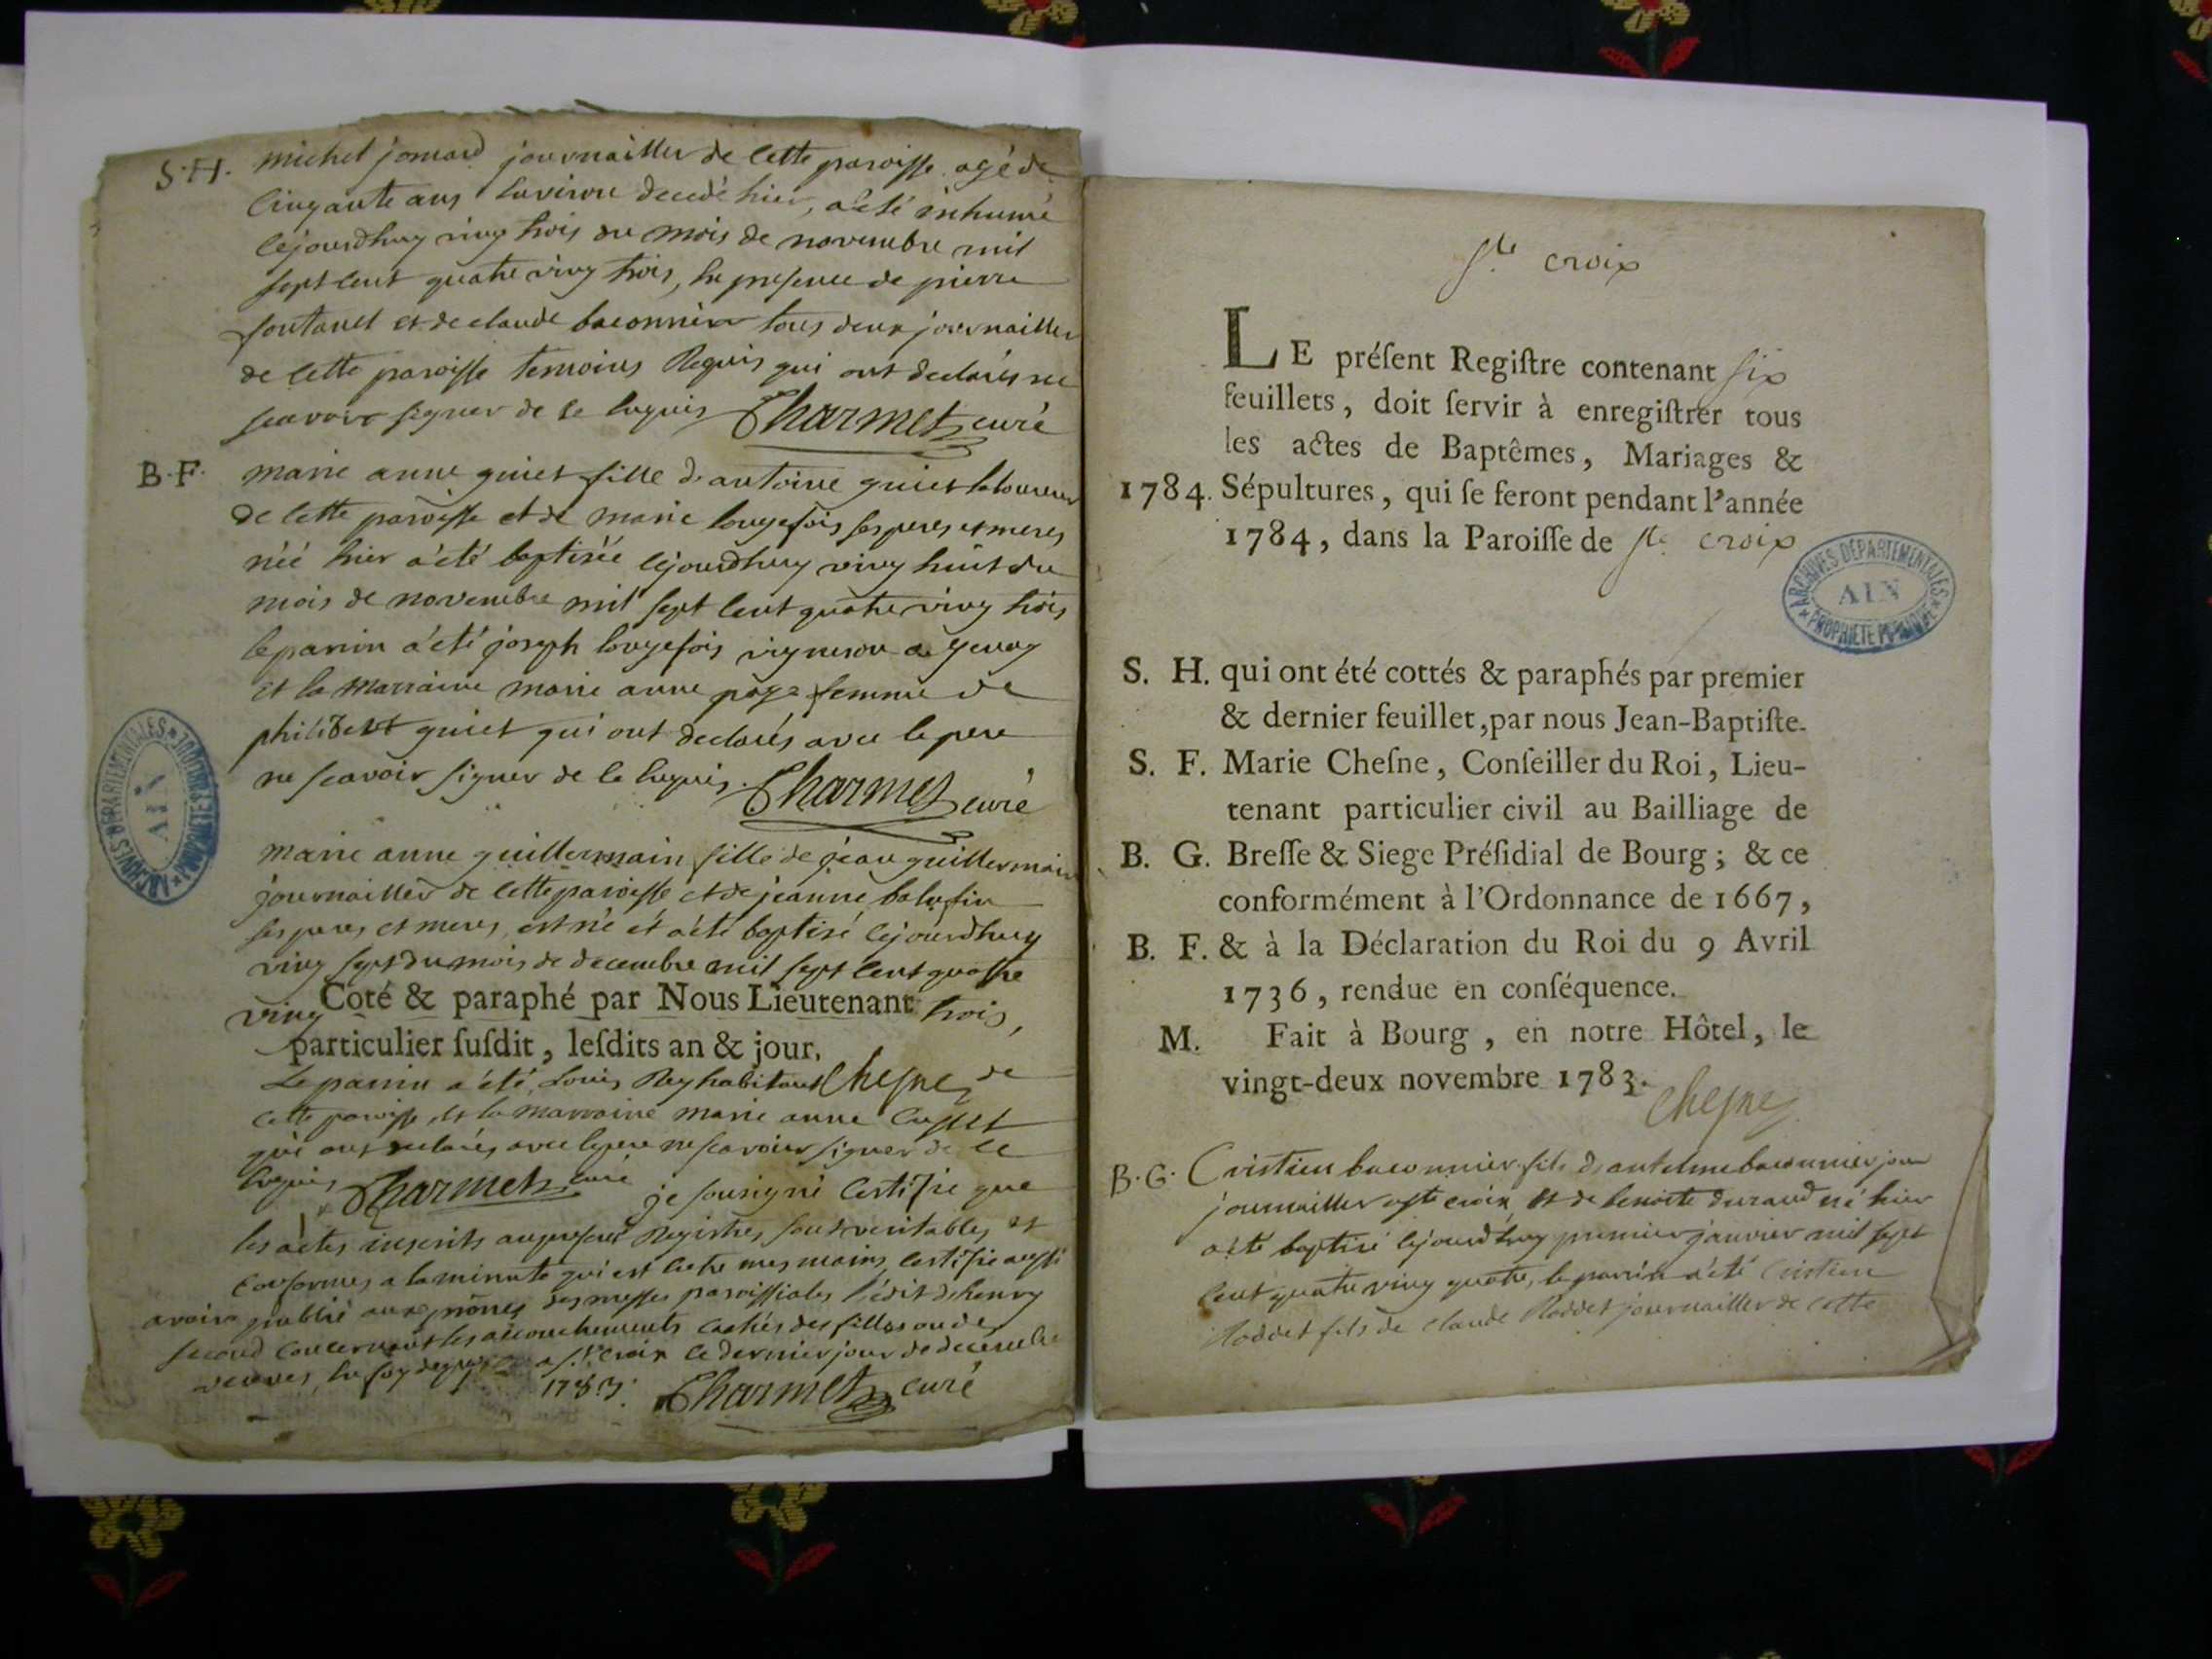 S. H. michel jomard journaillier de cette paroisse agé de
cinquante ans environ decedé hier, a été inhumé
cejourdhuy ving trois du mois de novembre mil
sept cent quatre ving trois, en presence de pierre
fontanel et de claude baconnier tous deux journaillier
de cette paroisse temoins Requis qui ont declarés ne
scavoir signer de ce enquis Charmet curé
B. F. marie anne guiet fille d'antoine guiet laboureur
de cette paroisse et de marie longefois ses peres et meres
néé hier a été baptisée cejourdhuy ving huit du
mois de novembre mil sept cent quatre ving trois
le parrin a été joseph longefois vigneron a
et la marraine marie anne page femme de
philibert guiet qui ont declarés avec le pere
ne scavoir signer de ce enquis. Charmet curé
marie anne guillermain fille de jean guillermain
journaillier de cette paroisse et de jeanne
ses peres et meres, est né et a été baptisé cejourdhuy
ving sept du mois de decembre mil sept cent quatre
ving Coté & paraphé par Nous Lieutenant trois,
particulier ſuſdit, leſdits an & jour.
Le parrin a été Louis Rey habitant Chesne de
cette paroisse, et la marraine marie anne
qui ont declarés avec le pere ne scavoir signer de ce
enquis Charmet curé je sousigné certifie que
les actes inscrits au present Registre, sont veritables, et
conformes a la minute qui est entre mes mains, certifie aussi
avoir publié aux prônes des messes paroissiales l'édit d'henry
second concernant les accouchements cachés des filles ou de
veuves, en foy de quoi a ste croix ce dernier jour de decembre
1783. Charmet curé
ARCHIVES DÉPARTEMENTALES
AIN
Ste croix
LE préſent Regiſtre contenant six
feuillets, doit ſervir à enregiſtrer tous
les actes de Baptêmes, Mariages &
1784. Sépultures, qui ſe feront pendant l'année
1784, dans la Paroiſſe de ste croix
ARCHIVES DÉPARTEMENTALES
AIN
PROPRIÉTÉ PUBLIQUE
S. H. qui ont été cottés & paraphés par premier
& dernier feuillet, par nous Jean-Baptiſte-
S. F. Marie Cheſne, Conſeiller du Roi, Lieu-
tenant particulier civil au Bailliage de
B. G. Breſſe & Siege Préſidial de Bourg; & ce
conformément à l'Ordonnance de 1667,
B. F. & à la Déclaration du Roi du 9 Avril
1736, rendue en conſéquence.
M. Fait à Bourg, en notre Hôtel, le
vingt-deux novembre 1783.
Chesne
B. G. Cristien baconnier fils d'antelme baconnier jour
journaillier a ste croix et de benoite durand né hier
a été baptisé cejourdhuy premier janvier mil sept
cent quatre ving quatre, le parrin a été Cristien
Roddet fils de claude Roddet journaillier de cette